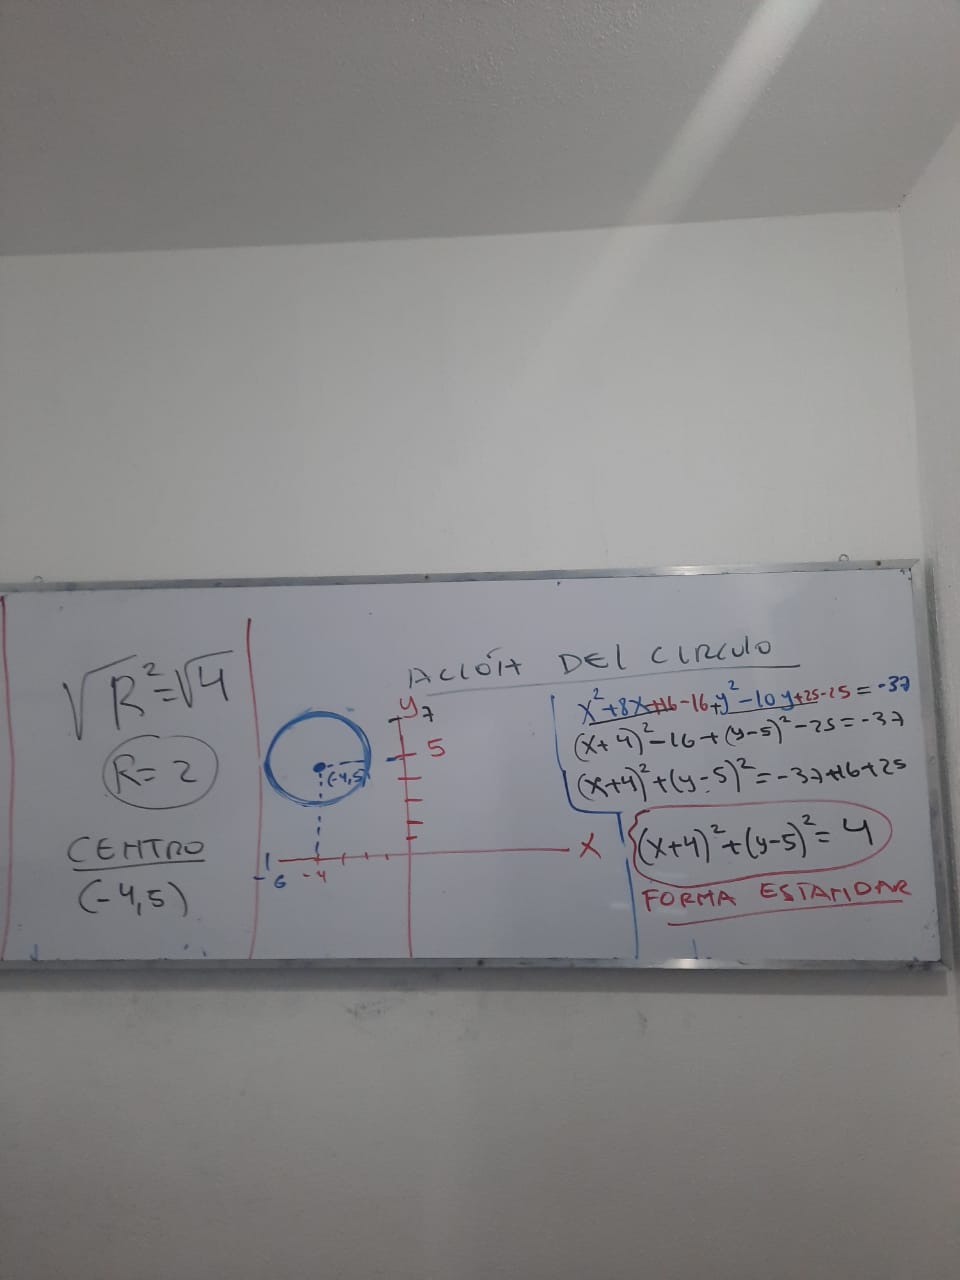 √R²=√4
R=2
CENTRO
(-4,5)
ACIÓN DEL CIRCULO
y
7
5
(-4,5)
X
-6 -4
x²+8x+16-16+y²-10y+25-25=-37
(x+4)²-16+(y-5)²-25=-37
(x+4)²+(y-5)²=-37+16+25
(x+4)²+(y-5)²=4
FORMA ESTANDAR